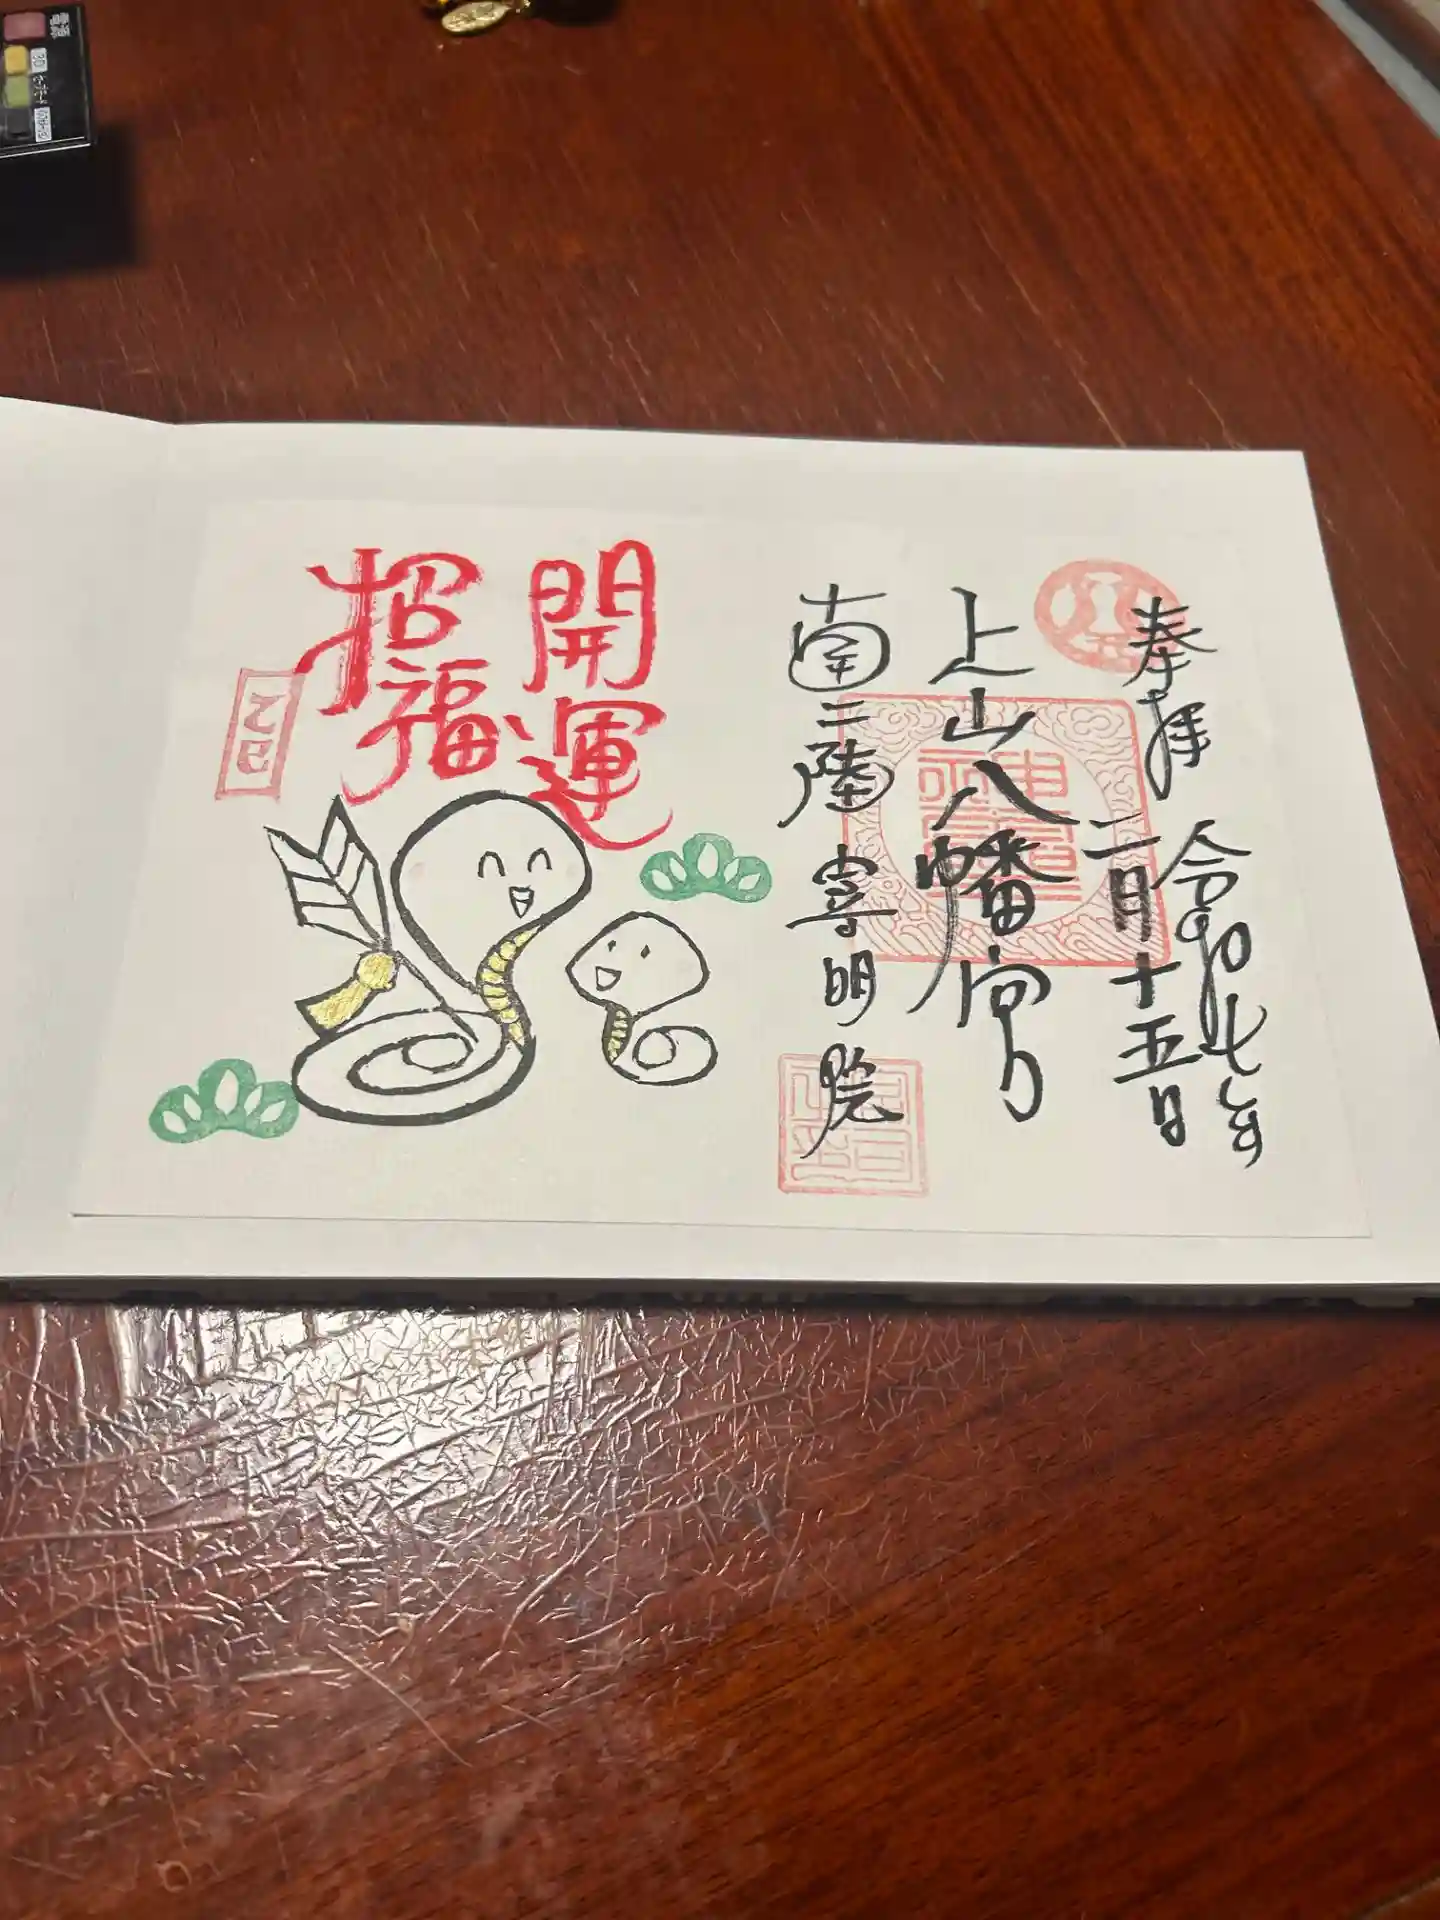 奉拝
令和七年
二月十五日
上山八幡宮
南三陸
寄明院
開運
招福
乙巳